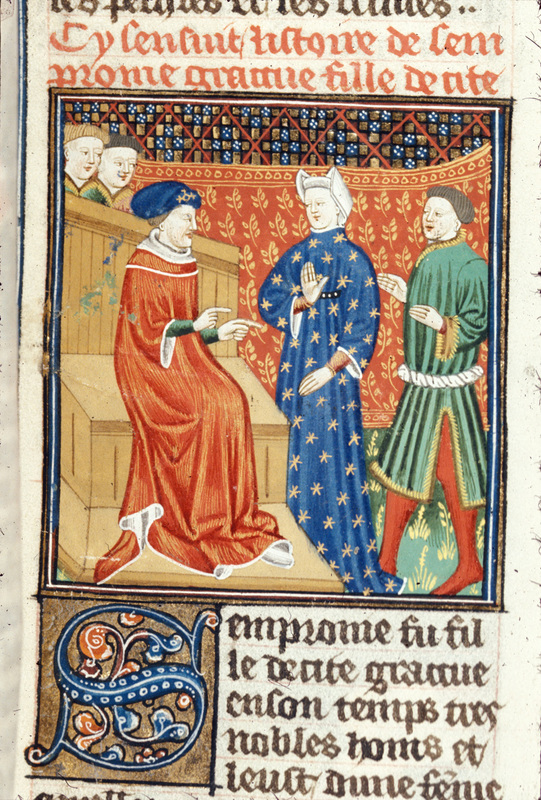 les perches et les
Cy sensuit listoire de sem
pronie gracque fille de tite
Sempronie fu fil
le de tite gracque
en son temps tres
nobles homs et
leust dune feme